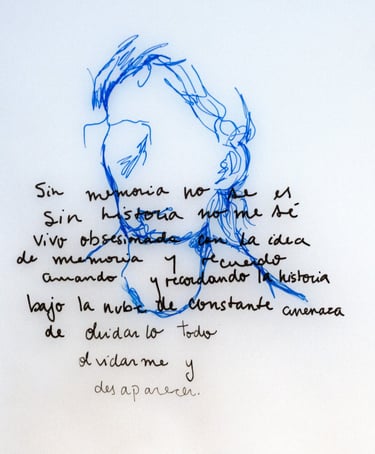 Sin memoria no se es
Sin historia no me sé
Vivo obsesionada con la idea
de memoria y recuerdo
amando y recordando la historia
bajo la nube de constante amenaza
de olvidarlo todo
olvidarme y
desaparecer.